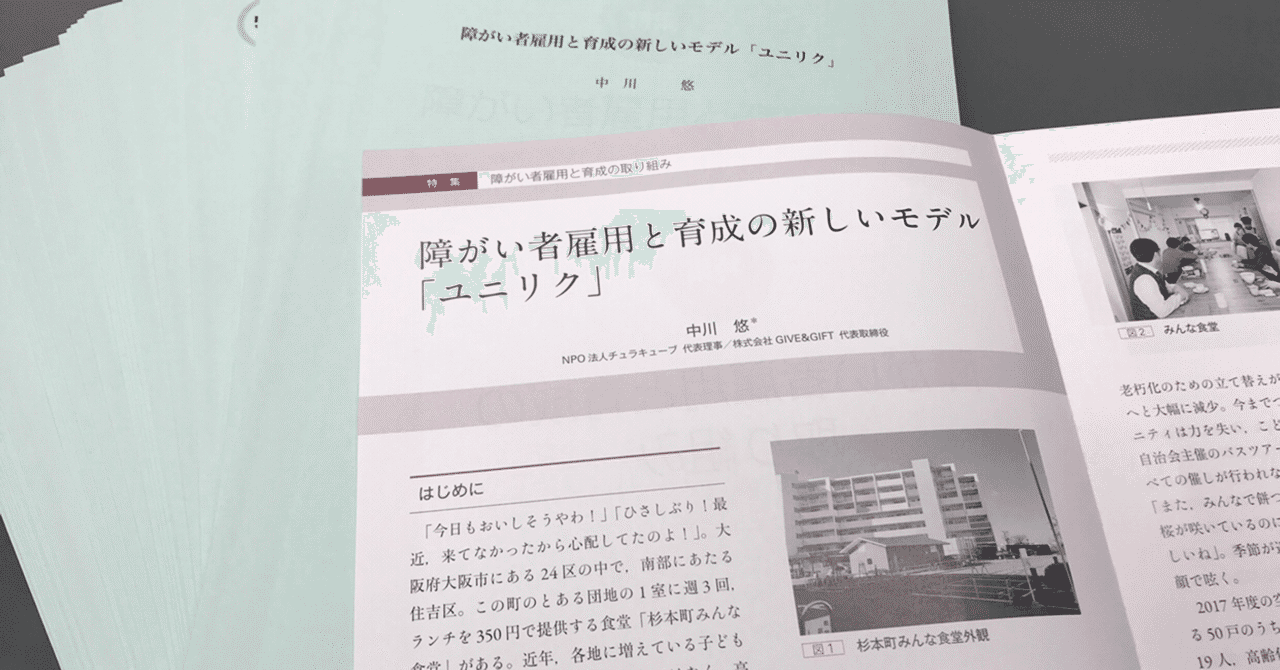 障がい者雇用と育成の新しいモデル「ユニリク」
中川 悠
特集 障がい者雇用と育成の取り組み
障がい者雇用と育成の新しいモデル
「ユニリク」
中川 悠*
NPO法人チュラキューブ 代表理事／株式会社GIVE&GIFT 代表取締役
はじめに
「今日もおいしそうやわ！」「ひさしぶり！最
近，来てなかったから心配してたのよ！」。大
阪府大阪市にある24区の中で，南部にあたる
住吉区。この町のとある団地の1室に週3回，
ランチを350円で提供する食堂「杉本町みんな
食堂」がある。近年，各地に増えている子ども
図1 杉本町みんな食堂外観
図2 みんな食堂
老朽化のための立て替えが
へと大幅に減少。今までつ
ニティは力を失い，こと
自治会主催のバスツアー
べての催しが行われな
「また，みんなで餅つ
桜が咲いているのに
しいね」。季節が
顔で呟く。
2017年度の
る50戸のうち
19人，高齢